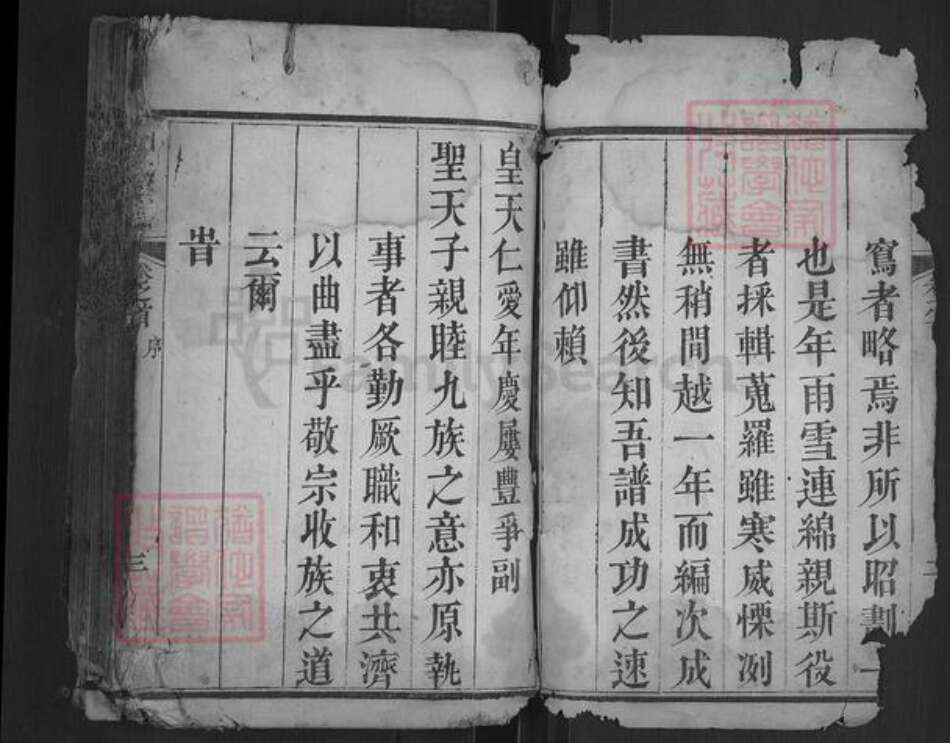 寫者略焉非所以昭劃一
也是年雨雪連綿親斯役
者採輯蒐羅雖寒威慄冽
無稍間越一年而編次成
書然後知吾譜成功之速
雖仰賴
皇天仁愛年慶屢豐爭副
聖天子親睦九族之意亦原執
事者各勤厥職和衷共濟
以曲盡乎敬宗收族之道
云爾
旹
卷之首 序
三
FamilySearch